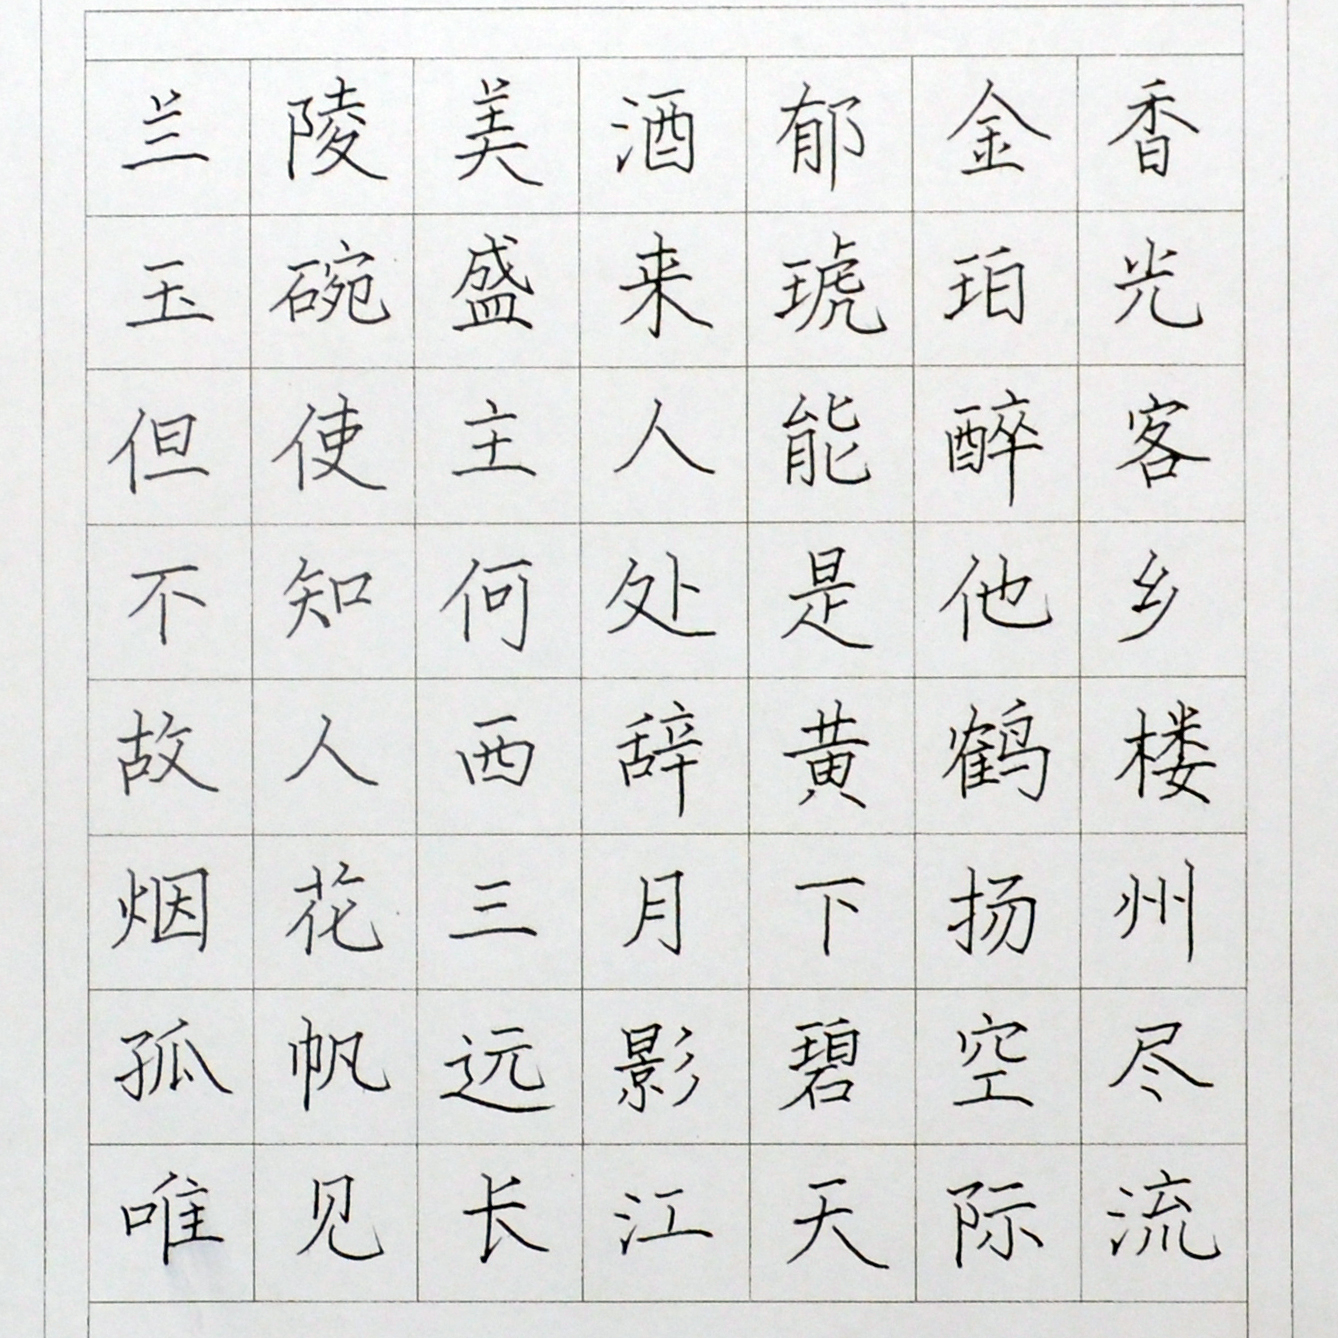 兰陵美酒郁金香
玉碗盛来琥珀光
但使主人能醉客
不知何处是他乡
故人西辞黄鹤楼
烟花三月下扬州
孤帆远影碧空尽
唯见长江天际流